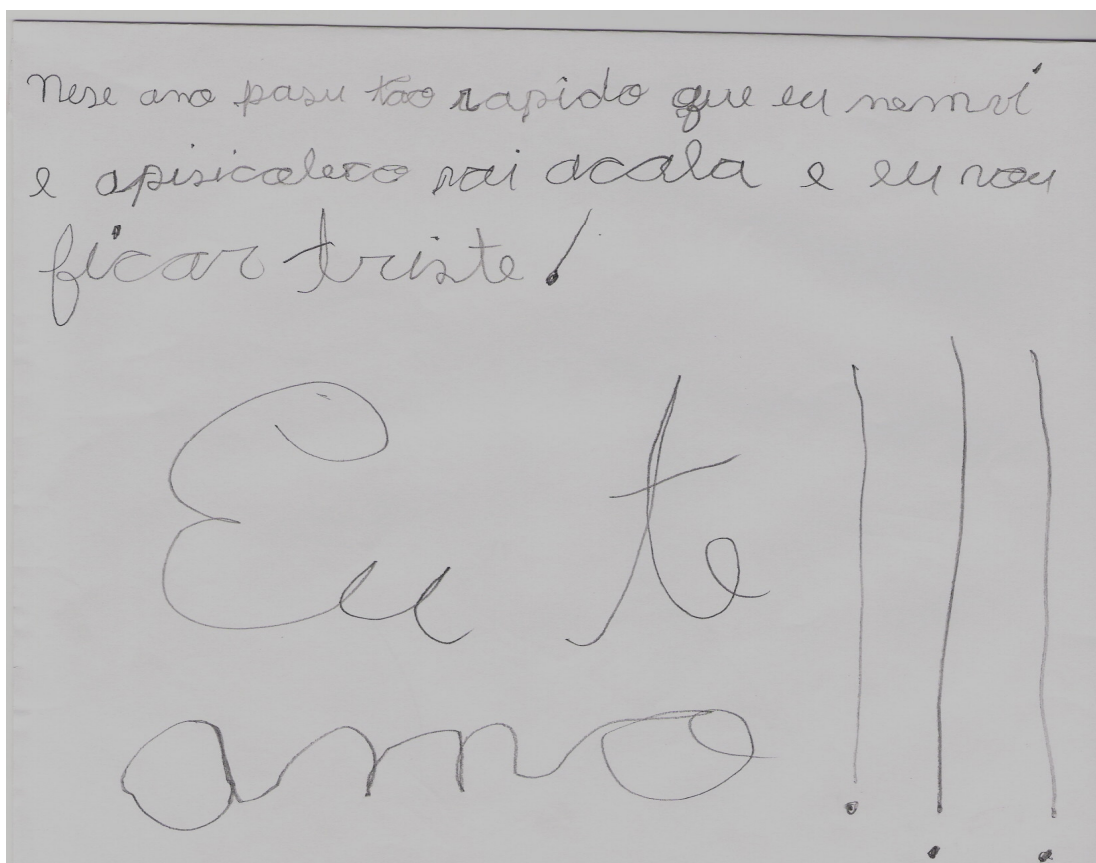 Nese ano pasu tão rapido que eu nem ví
e apisicoleco vai acala e eu vou
ficar triste!
Eu te
amo!!!